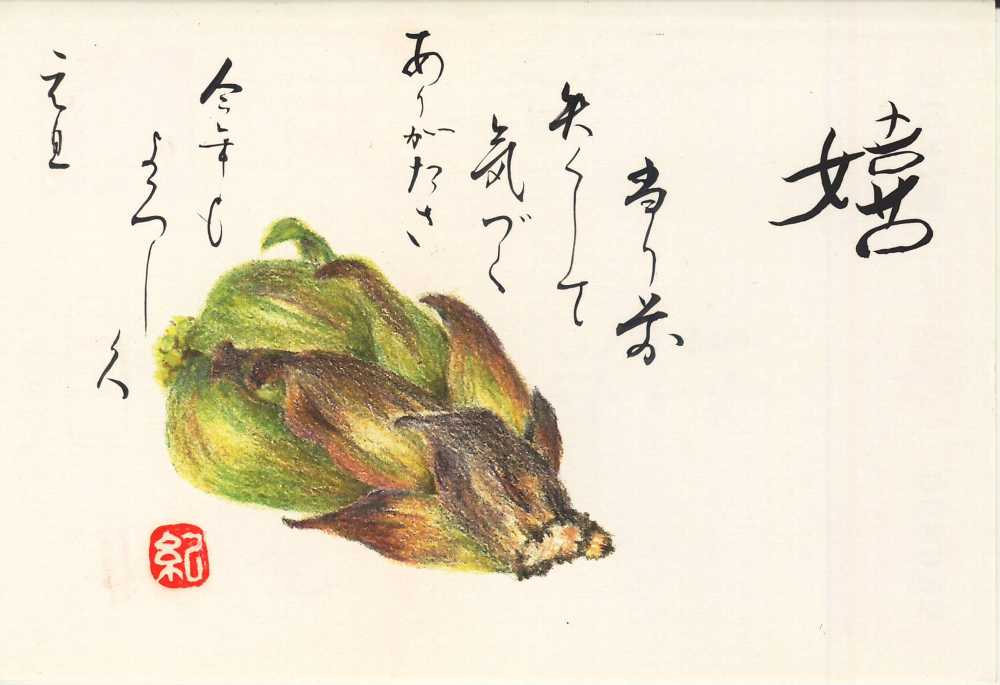 嬉
当り前
失くして
気づく
ありがたさ
今年も
よろし
く
元旦
紀